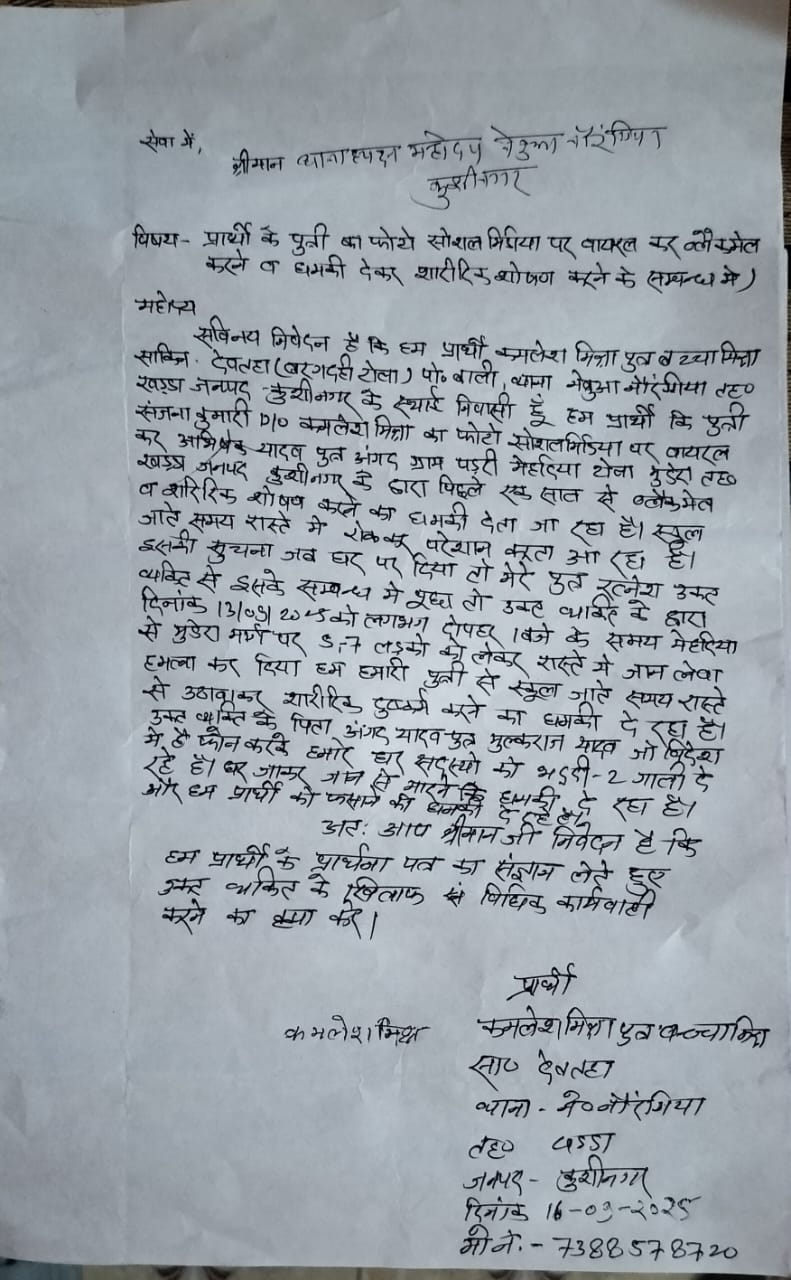 सेवा में,
श्रीमान थानाध्यक्ष महोदय नेबुआ नौरंगिया
कुशीनगर
विषय- प्रार्थी के पुत्री का फोटो सोशल मिडिया पर वायरल कर ब्लैकमेल
करने व धमकी देकर शारीरिक शोषण करने के सम्बन्ध मे)
महोदय
सविनय निवेदन है कि हम प्रार्थी कमलेश मिश्रा पुत्र बच्चा मिश्रा
साकिन - देवतहा (बरगदही टोला) पो० बाली, थाना नेबुआ नौरंगिया तह०
खड्डा जनपद - कुशीनगर के स्थाई निवासी हूँ हम प्रार्थी कि पुत्री
संजना कुमारी D/o कमलेश मिश्रा का फोटो सोशल मिडिया पर वायरल
कर अभिषेक यादव पुत्र अंगद ग्राम पड़री मेहदिया टोला मुडेरा तह०
खड्डा जनपद कुशीनगर के द्वारा पिछले एक साल से ब्लैकमेल
व शारिरिक शोषण करने का धमकी देता जा रहा है। स्कूल
जाते समय रास्ते मे रोककर परेशान करता आ रहा है।
इसकी सुचना जब घर पर दिया तो मेरे पुत्र रत्नेश उक्त
व्यक्ति से इसके सम्बन्ध मे पूछा तो उक्त व्यक्ति के द्वारा
दिनांक 13/03/2025 को लगभग दोपहर 1 बजे के समय मेहदिया
से मुडेरा मार्ग पर 5,7 लड़को को लेकर रास्ते मे जान लेवा
हमला कर दिया हम हमारी पुत्री से स्कूल जाते समय रास्ते
से उठवाकर शारीरिक दुष्कर्म करने का धमकी दे रहा है।
उक्त व्यक्ति के पिता अंगद यादव पुत्र मुल्कराज यादव जो विदेश
मे है फोन करके हमारे घर सदस्यो को भद्दी-2 गाली दे
रहे है। घर जाकर जान से मारने कि धमकी दे रहा है।
और हम प्रार्थी को फसाने की धमकी दे रहे है।
अतः आप श्रीमान जी निवेदन है कि
हम प्रार्थी के प्रार्थना पत्र का संज्ञान लेते हुए
उक्त व्यकित के खिलाफ विधिक कार्यवाही
करने का कृपा करें।
प्रार्थी
कमलेश मिश्रा
कमलेश मिश्रा पुत्र बच्चा मिश्रा
सा० देवतहा
थाना - ने० नौरंगिया
तह० खड्डा
जनपद - कुशीनगर
दिनांक 16-03-2025
मो नं. - 7388578720